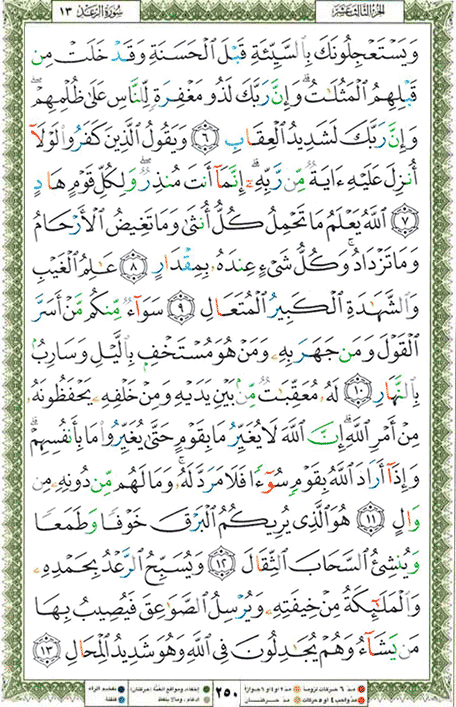 الجزء الثالث عشر
سورة الرعد ١٣
وَيَسْتَعْجِلُونَكَ بِالسَّيِّئَةِ قَبْلَ الْحَسَنَةِ وَقَدْ خَلَتْ مِن
قَبْلِهِمُ الْمَثُلَاتُ ۗ وَإِنَّ رَبَّكَ لَذُو مَغْفِرَةٍ لِّلنَّاسِ عَلَىٰ ظُلْمِهِمْ ۖ
وَإِنَّ رَبَّكَ لَشَدِيدُ الْعِقَابِ ٦ وَيَقُولُ الَّذِينَ كَفَرُوا لَوْلَا
أُنزِلَ عَلَيْهِ ءَايَةٌ مِّن رَّبِّهِ ۗ إِنَّمَا أَنتَ مُنذِرٌ ۖ وَلِكُلِّ قَوْمٍ هَادٍ
٧ اللَّهُ يَعْلَمُ مَا تَحْمِلُ كُلُّ أُنثَىٰ وَمَا تَغِيضُ الْأَرْحَامُ
وَمَا تَزْدَادُ ۖ وَكُلُّ شَيْءٍ عِندَهُ بِمِقْدَارٍ ٨ عَالِمُ الْغَيْبِ
وَالشَّهَادَةِ الْكَبِيرُ الْمُتَعَالِ ٩ سَوَاءٌ مِّنكُم مَّنْ أَسَرَّ
الْقَوْلَ وَمَن جَهَرَ بِهِ وَمَنْ هُوَ مُسْتَخْفٍ بِاللَّيْلِ وَسَارِبٌ
بِالنَّهَارِ ١٠ لَهُ مُعَقِّبَاتٌ مِّن بَيْنِ يَدَيْهِ وَمِنْ خَلْفِهِ يَحْفَظُونَهُ
مِنْ أَمْرِ اللَّهِ ۗ إِنَّ اللَّهَ لَا يُغَيِّرُ مَا بِقَوْمٍ حَتَّىٰ يُغَيِّرُوا مَا بِأَنفُسِهِمْ ۗ
وَإِذَا أَرَادَ اللَّهُ بِقَوْمٍ سُوءًا فَلَا مَرَدَّ لَهُ ۚ وَمَا لَهُم مِّن دُونِهِ مِن
وَالٍ ١١ هُوَ الَّذِي يُرِيكُمُ الْبَرْقَ خَوْفًا وَطَمَعًا
وَيُنشِئُ السَّحَابَ الثِّقَالَ ١٢ وَيُسَبِّحُ الرَّعْدُ بِحَمْدِهِ
وَالْمَلَائِكَةُ مِنْ خِيفَتِهِ وَيُرْسِلُ الصَّوَاعِقَ فَيُصِيبُ بِهَا
مَن يَشَاءُ وَهُمْ يُجَادِلُونَ فِي اللَّهِ وَهُوَ شَدِيدُ الْمِحَالِ ١٣
مد ٦ حركات لزوماً مد ٢ او ٤ او ٦ جوازاً
مد واجب ٤ او ٥ حركات مد حركتان
٢٥٠
إخفاء، ومواقع الغنة (حركتان) تفخيم الراء
ادغام، وما لا يلفظ قلقلة